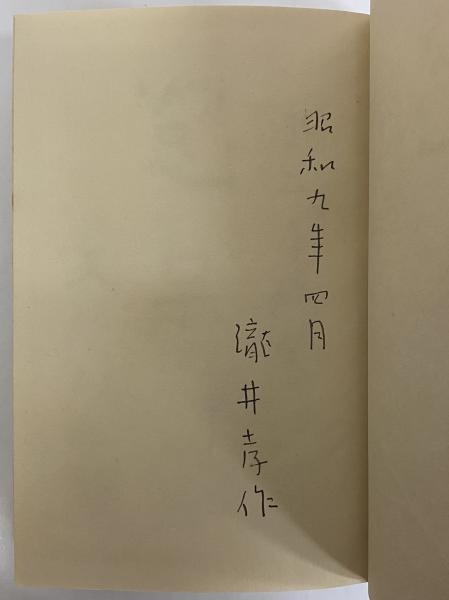 昭和九年四月
瀧井孝作